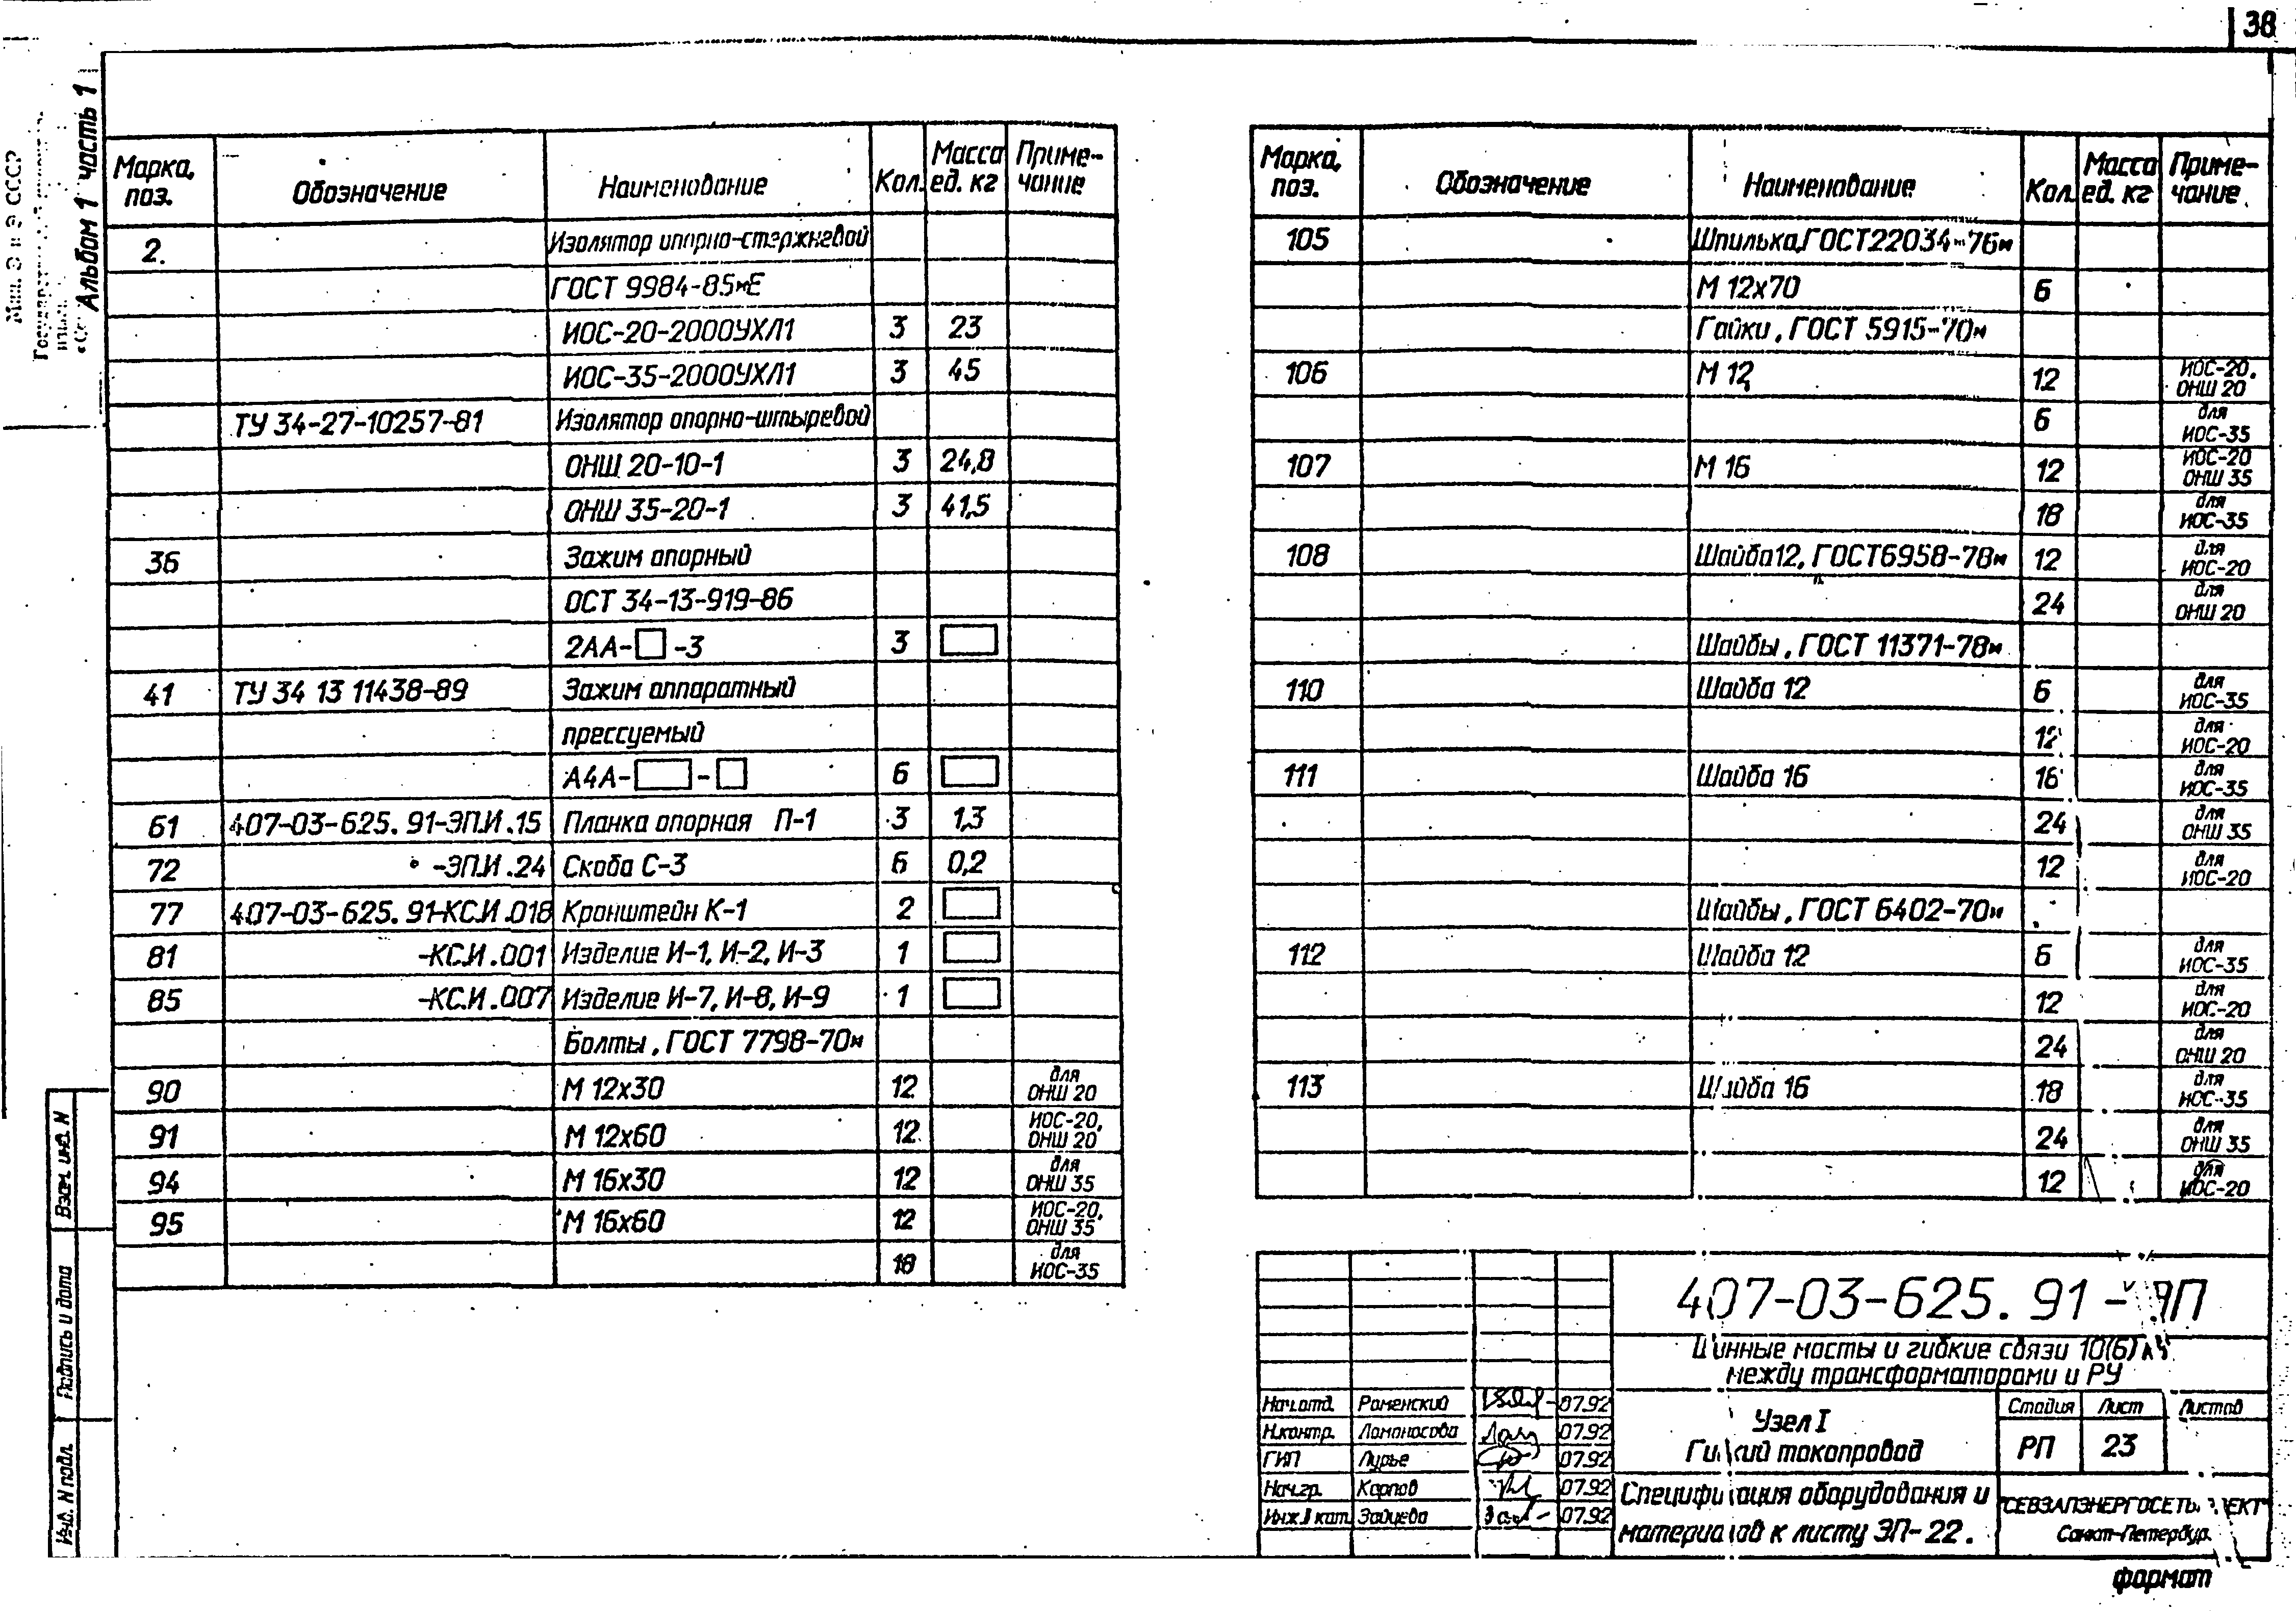 38
Альбом 1 часть 1
Марка, поз. Обозначение Наименование Кол. Масса ед. кг Приме-чание
2. Изолятор опорно-стержневой
ГОСТ 9984-85*Е
ИОС-20-2000УХЛ1 3 23
ИОС-35-2000УХЛ1 3 45
ТУ 34-27-10257-81 Изолятор опорно-штыревой
ОНШ 20-10-1 3 24,8
ОНШ 35-20-1 3 41,5
36 Зажим опорный
ОСТ 34-13-919-86
2АА-□-3 3
41 ТУ 34 13 11438-89 Зажим аппаратный
прессуемый
А4А-□-□ 6
61 407-03-625.91-ЭП.И.15 Планка опорная П-1 3 1,3
72 -ЭП.И.24 Скоба С-3 6 0,2
77 407-03-625.91-КС.И.018 Кронштейн К-1 2
81 -КС.И.001 Изделие И-1, И-2, И-3 1
85 -КС.И.007 Изделие И-7, И-8, И-9 1
Болты, ГОСТ 7798-70*
90 М 12х30 12 для ОНШ 20
91 М 12х60 12 ИОС-20, ОНШ 20
94 М 16х30 12 для ОНШ 35
95 М 16х60 12 ИОС-20, ОНШ 35
18 для ИОС-35
Марка, поз. Обозначение Наименование Кол. Масса ед. кг Приме-чание
105 Шпилька, ГОСТ 22034-76*
М 12х70 6
Гайки, ГОСТ 5915-70*
106 М 12 12 ИОС-20, ОНШ 20
6 для ИОС-35
107 М 16 12 ИОС-20 ОНШ 35
18 для ИОС-35
108 Шайба 12, ГОСТ 6958-78* 12 для ИОС-20
24 для ОНШ 20
Шайбы, ГОСТ 11371-78*
110 Шайба 12 6 для ИОС-35
12 для ИОС-20
111 Шайба 16 18 для ИОС-35
24 для ОНШ 35
12 для ИОС-20
Шайбы, ГОСТ 6402-70*
112 Шайба 12 6 для ИОС-35
12 для ИОС-20
24 для ОНШ 20
113 Шайба 16 18 для ИОС-35
24 для ОНШ 35
12 для ИОС-20
407-03-625.91-ЭП
Шинные мосты и гибкие связи 10(6) кВ
между трансформаторами и РУ
Нач.отд. Раменский 07.92
Н.контр. Ломоносова 07.92
ГИП Лурье 07.92
Нач.гр. Карпов 07.92
Инж.II кат. Зайцева 07.92
Узел I
Гибкий токопровод
Стадия Лист Листов
РП 23
Спецификация оборудования и
материалов к листу ЭП-22.
"СЕВЗАПЭНЕРГОСЕТЬПРОЕКТ"
Санкт-Петербург
формат
Взам. инв. N
Подпись и дата
Инв. N подл.